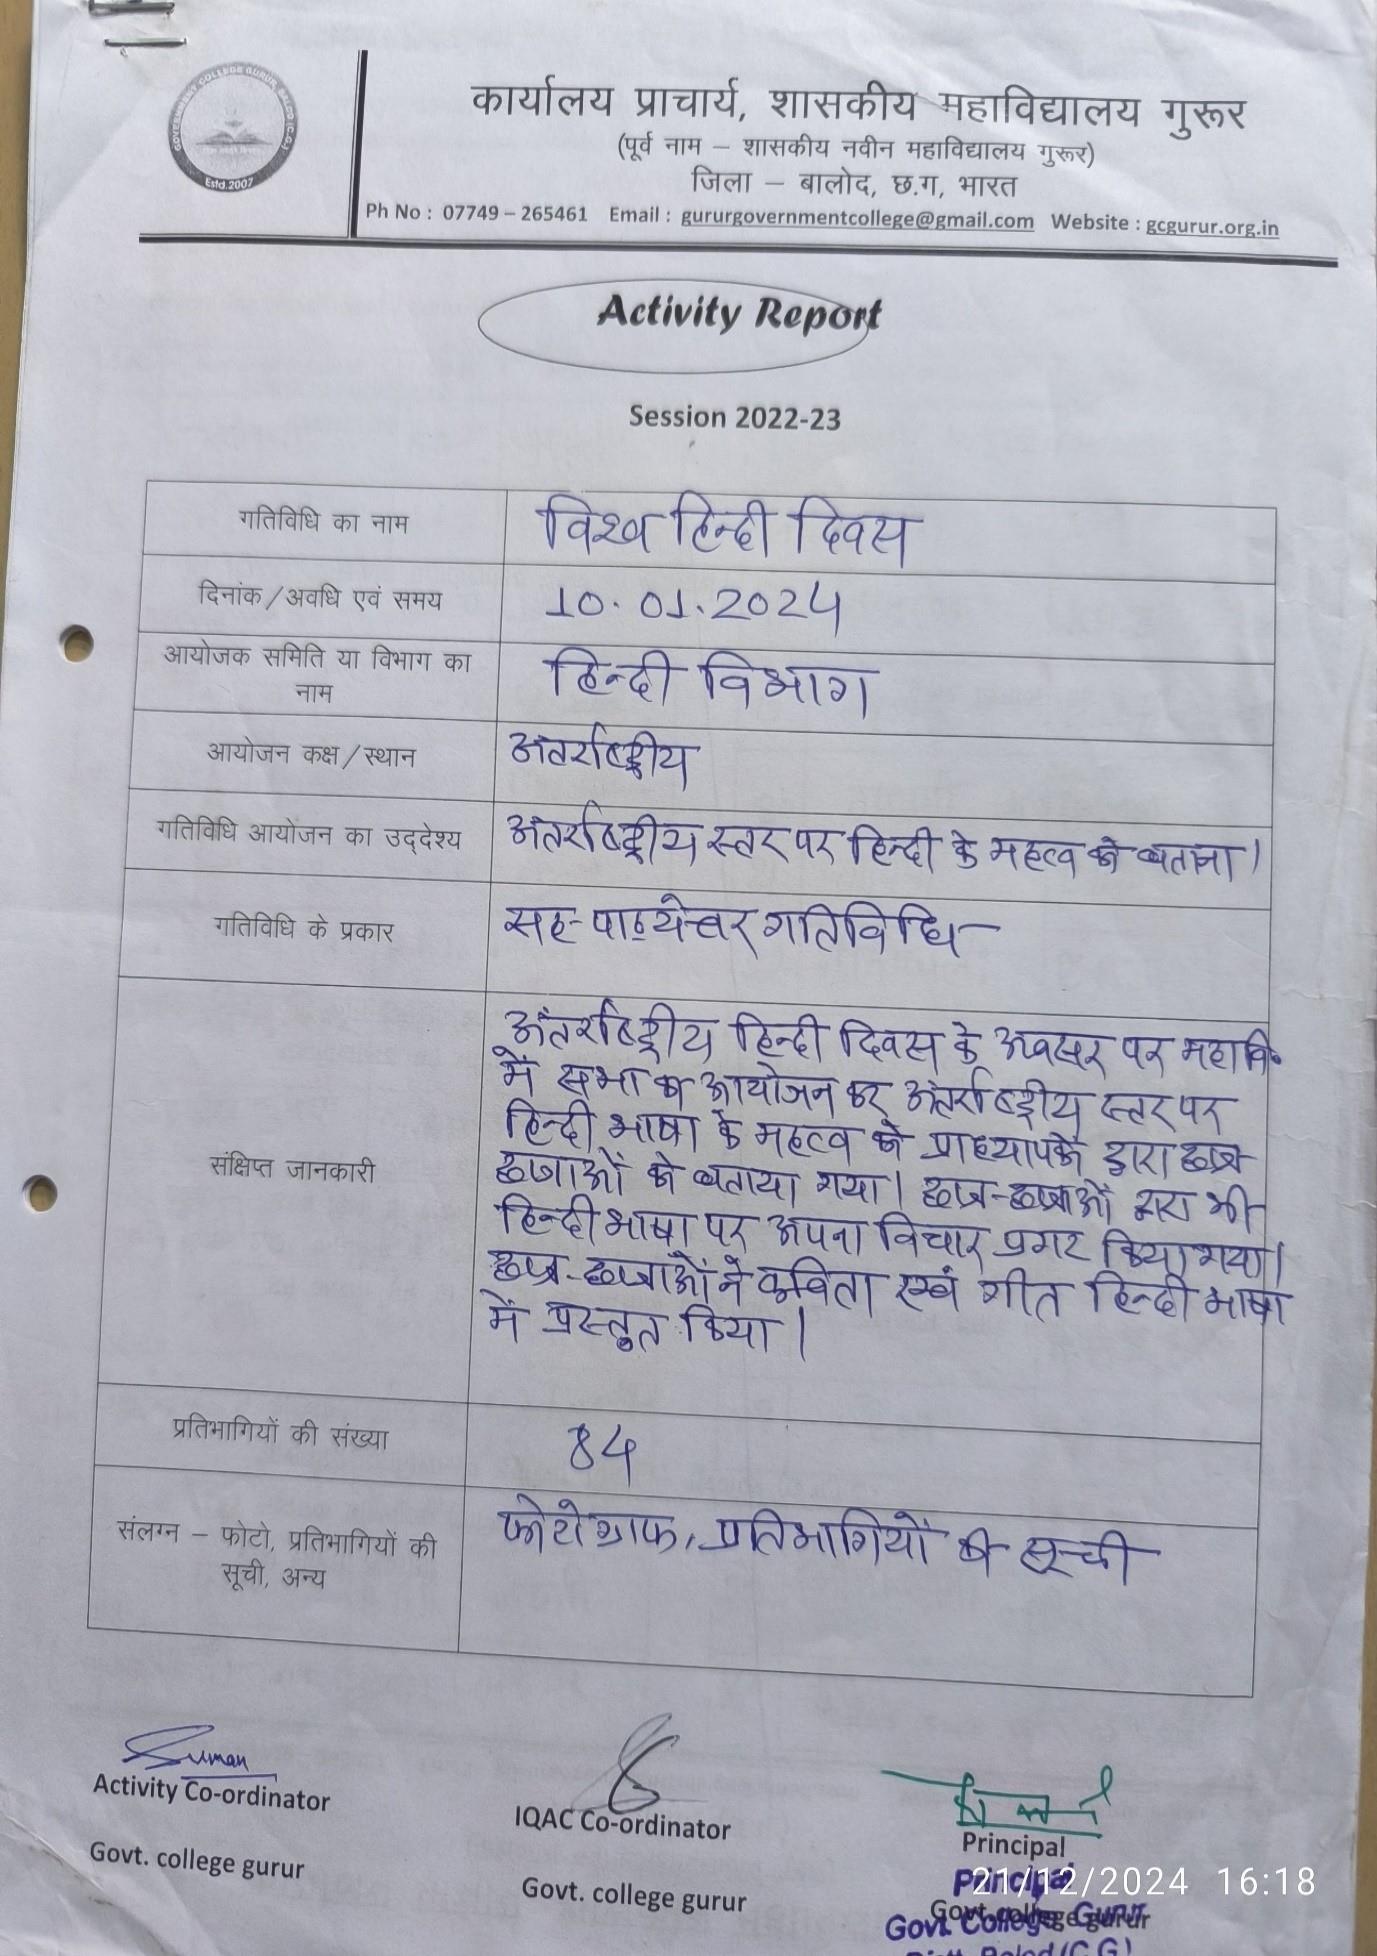 GOVERNMENT COLLEGE GURUR, BALOD (C.G.)
Estd.2007
कार्यालय प्राचार्य, शासकीय महाविद्यालय गुरूर
(पूर्व नाम – शासकीय नवीन महाविद्यालय गुरूर)
जिला – बालोद, छ.ग, भारत
Ph No : 07749 – 265461 Email : gururgovernmentcollege@gmail.com Website : gcgurur.org.in
Activity Report
Session 2022-23
गतिविधि का नाम
विश्व हिन्दी दिवस
दिनांक/अवधि एवं समय
10.01.2024
आयोजक समिति या विभाग का
नाम
हिन्दी विभाग
आयोजन कक्ष/स्थान
अंतर्राष्ट्रीय
गतिविधि आयोजन का उद्देश्य
अंतर्राष्ट्रीय स्तर पर हिन्दी के महत्व को बताना।
गतिविधि के प्रकार
सह-पाठ्येत्तर गतिविधि
संक्षिप्त जानकारी
अंतर्राष्ट्रीय हिन्दी दिवस के अवसर पर महावि.
में सभा का आयोजन कर अंतर्राष्ट्रीय स्तर पर
हिन्दी भाषा के महत्व को प्राध्यापकों द्वारा छात्र
छात्राओं को बताया गया। छात्र-छात्राओं द्वारा भी
हिन्दी भाषा पर अपना विचार प्रगट किया गया।
छात्र-छात्राओं ने कविता एवं गीत हिन्दी भाषा
में प्रस्तुत किया।
प्रतिभागियों की संख्या
84
संलग्न – फोटो, प्रतिभागियों की
सूची, अन्य
फोटोग्राफ, प्रतिभागियों की सूची
Suman
Activity Co-ordinator
IQAC Co-ordinator
Principal
Govt. college gurur
Govt. college gurur
Principal
21/12/2024 16:18
Govt. college gurur
Govt. College Gurur
Distt. Balod (C.G.)